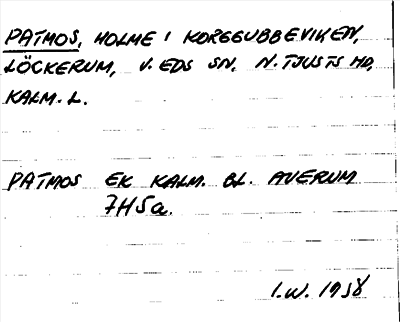 PATMOS, HOLME I KORGGUBBEVIKEN,
LÖCKERUM, V. EDS SN, N. TJUSTS HD,
KALM. L.
PATMOS EK KALM. BL. AVERUM
7H5a.
I.W. 1958